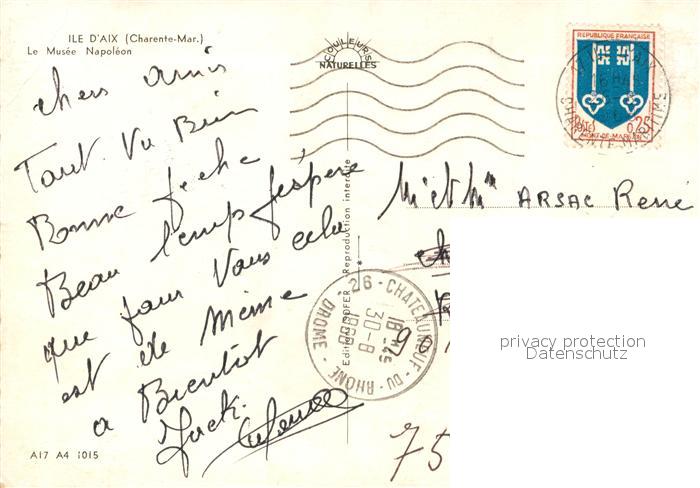 ILE D'AIX (Charente-Mar.)
Le Musée Napoléon
COULEURS
NATURELLES
REPUBLIQUE FRANÇAISE
0,25
MONT-DE-MARSAN
CHARENTE-MARITIME
chers amis
Tout Va Bien
Bonne peche
Beau temps J'espère
que pour Vous cela
est de Même
a Bientot
Jack
Reproduction interdite
ARSAC René
26 - CHATEAUNEUF - DU - RHÔNE
18H45
30-8
1966
DROME
privacy protection
Datenschutz
75
A17 A4 1015